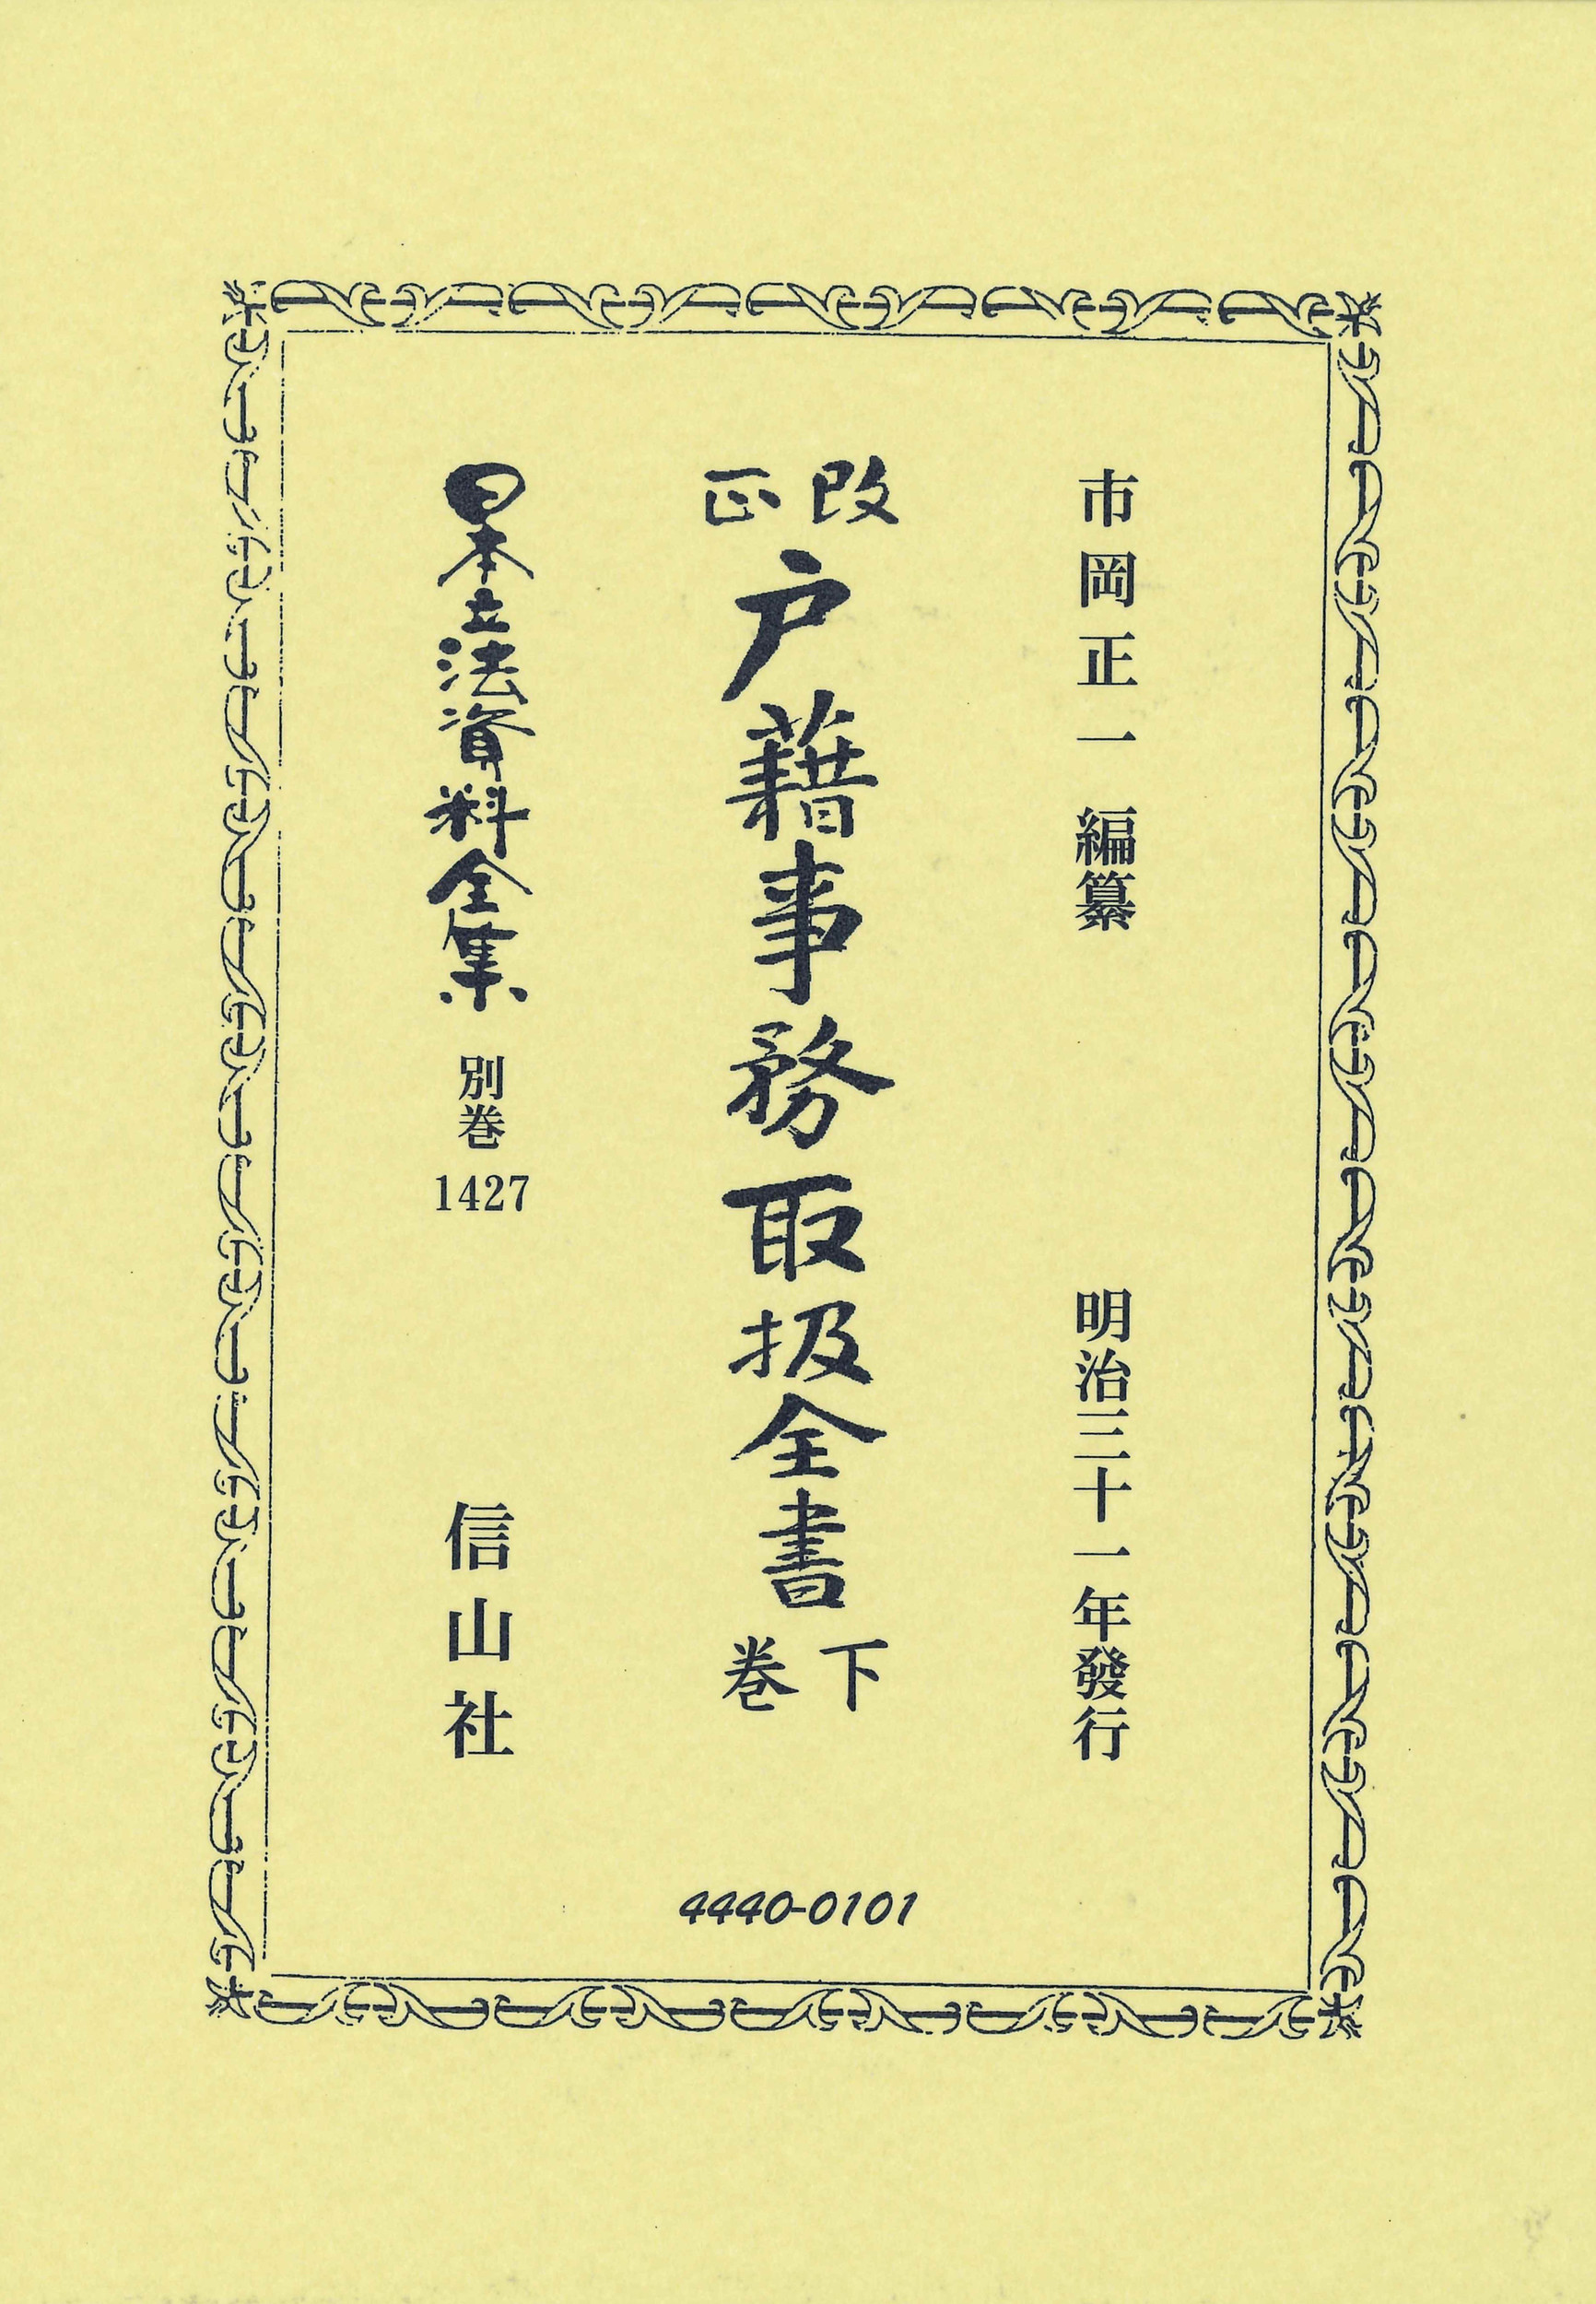 市岡正一 編纂
明治三十一年發行
改正
戸籍事務取扱全書
下巻
日本立法資料全集
別巻
1427
信山社
4440-0101